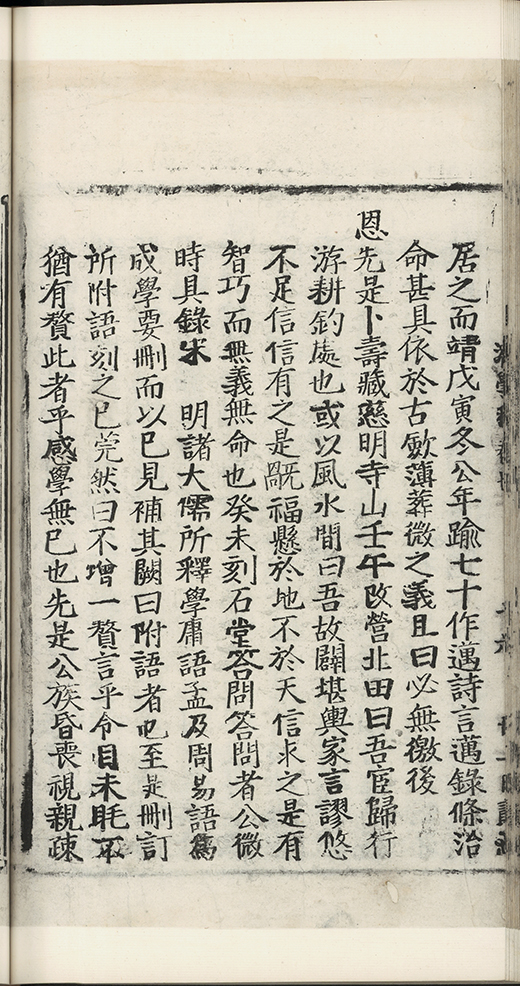 居之而靖戊寅冬公年踰七十作邁詩言邁錄條治
命甚具依於古斂薄葬微之義且曰必無徼後
恩先是卜壽藏慈明寺山壬午改營北田曰吾宦歸行
游耕釣處也或以風水間曰吾故闢堪輿家言謬悠
不足信信有之是覬福懸於地不於天信求之是有
智巧而無義無命也癸未刻石堂答問答問者公微
時具錄宋 明諸大儒所釋學庸語孟及周易語為
成學要刪而以已見補其闕曰附語者也至是刪訂
所附語刻之已莞然曰不增一贅言乎令目未眊不
猶有贅此者乎感學無已也先是公族昏喪視親疎